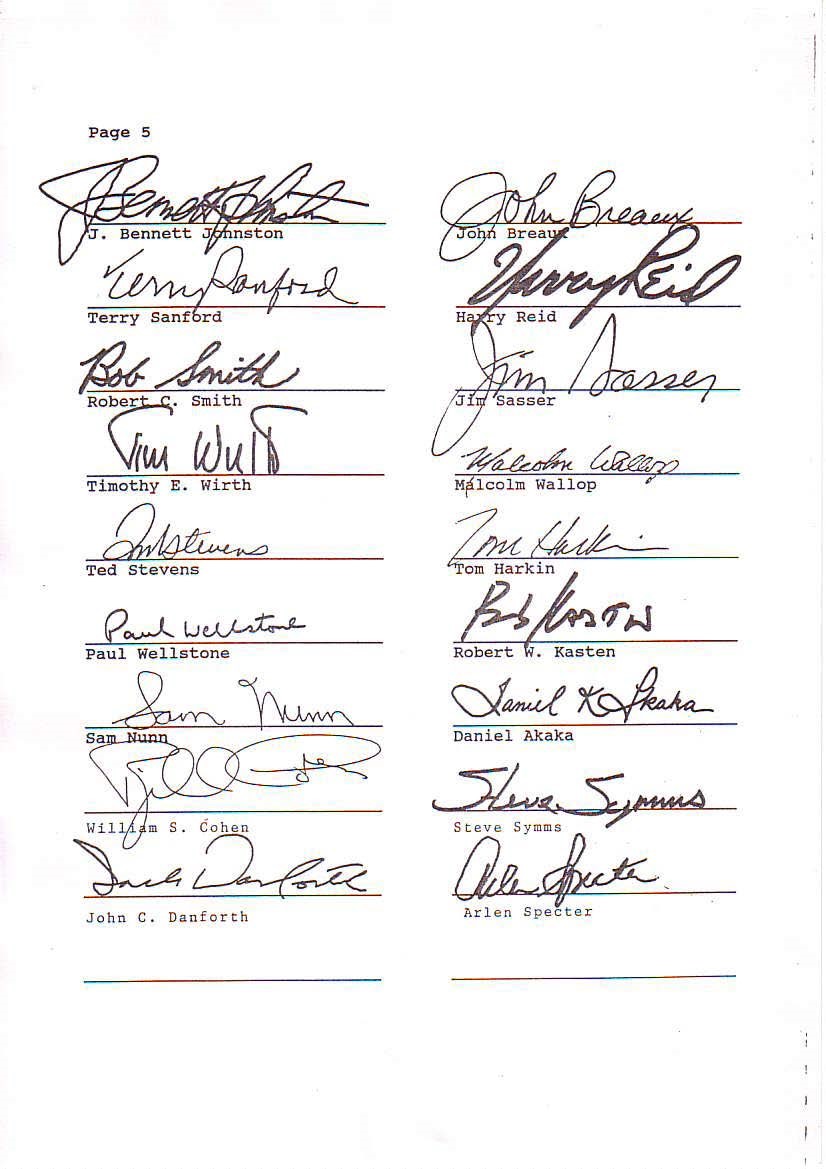 Page 5
J Bennett Johnston John Breaux
J. Bennett Johnston John Breaux
Terry Sanford Harry Reid
Terry Sanford Harry Reid
Bob Smith Jim Sasser
Robert C. Smith Jim Sasser
Tim Wirth Malcolm Wallop
Timothy E. Wirth Malcolm Wallop
Ted Stevens Tom Harkin
Ted Stevens Tom Harkin
Paul Wellstone Bob Kasten
Paul Wellstone Robert W. Kasten
Sam Nunn Daniel K Akaka
Sam Nunn Daniel Akaka
Bill Cohen Steve Symms
William S. Cohen Steve Symms
Jack Danforth Arlen Specter
John C. Danforth Arlen Specter